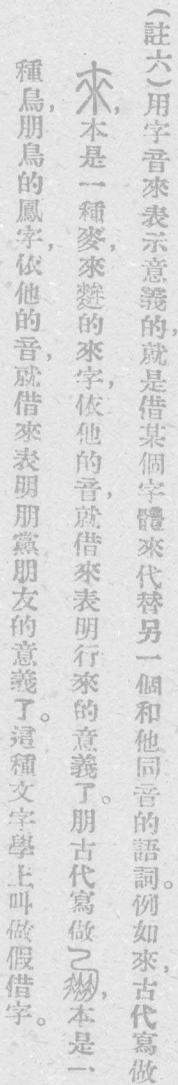 (註六)用字音來表示意義的,就是借某個字體來代替另一個和他同音的語詞。例如來,古代寫做
,本是一種麥,來麰的來字,依他的音,就借來表明行來的意義了。朋古代寫做,本是一
種鳥,朋鳥的鳳字,依他的音,就借來表明朋黨朋友的意義了。這種文字學上叫做假借字。